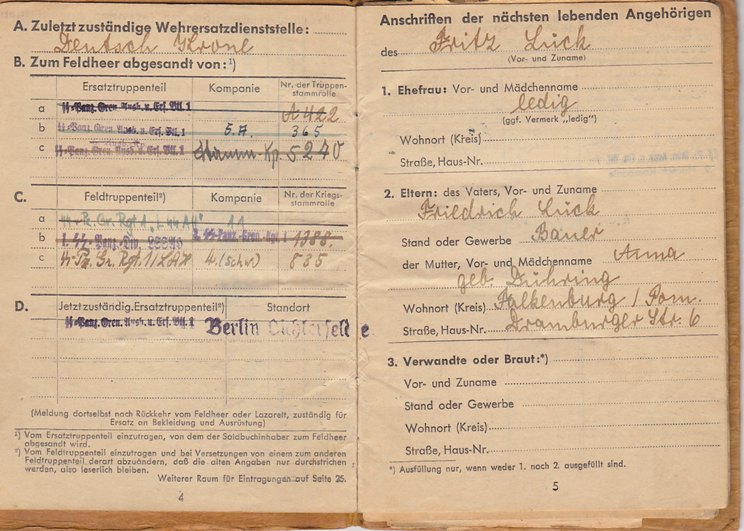 A. Zuletzt zuständige Wehrersatzdienststelle:
Deutsch Krone
B. Zum Feldheer abgesandt von:¹)
Ersatztruppenteil Kompanie Nr. der Truppenstammrolle
a ᛋᛋ-Panz. Gren. Ausb. u. Ers. Btl. 1 A 422
b ᛋᛋ-Panz. Gren. Ausb. u. Ers. Btl. 1 5. A. 365
c ᛋᛋ-Panz. Gren. Ausb. u. Ers. Btl. 1 Stamm-Kp. 5240
C. Feldtruppenteil²) Kompanie Nr. der Kriegsstammrolle
a ᛋᛋ-Pz. Gr. Rgt 1 „L ᛋᛋ AH" 11
b 1. ᛋᛋ-Panz.-Div. ᛋᛋ-Panz.-Gren.-Rgt. 1 1388.
c ᛋᛋ-Pz. Gr. Rgt. 1/LAH 4. (schw) 835
D. Jetzt zuständig. Ersatztruppenteil²) Standort
ᛋᛋ-Panz. Gren. Ausb. u. Ers. Btl. 1 Berlin Lichterfelde
(Meldung dortselbst nach Rückkehr vom Feldheer oder Lazarett, zuständig für
Ersatz an Bekleidung und Ausrüstung)
¹) Vom Ersatztruppenteil einzutragen, von dem der Soldbuchinhaber zum Feldheer
abgesandt wird.
²) Vom Feldtruppenteil einzutragen und bei Versetzungen von einem zum anderen
Feldtruppenteil derart abzuändern, daß die alten Angaben nur durchstrichen
werden, also leserlich bleiben.
Weiterer Raum für Eintragungen auf Seite 25.
4
Anschriften der nächsten lebenden Angehörigen
des Fritz Lück
(Vor- und Zuname)
1. Ehefrau: Vor- und Mädchenname
ledig
(ggf. Vermerk „ledig")
Wohnort (Kreis)
Straße, Haus-Nr.
2. Eltern: des Vaters, Vor- und Zuname
Friedrich Lück
Stand oder Gewerbe Bauer
der Mutter, Vor- und Mädchenname Anna
geb. Dühring
Wohnort (Kreis) Falkenburg / Pom.
Straße, Haus-Nr. Dramburger Str. 6
3. Verwandte oder Braut:*)
Vor- und Zuname
Stand oder Gewerbe
Wohnort (Kreis)
Straße, Haus-Nr.
*) Ausfüllung nur, wenn weder 1. noch 2. ausgefüllt sind.
5